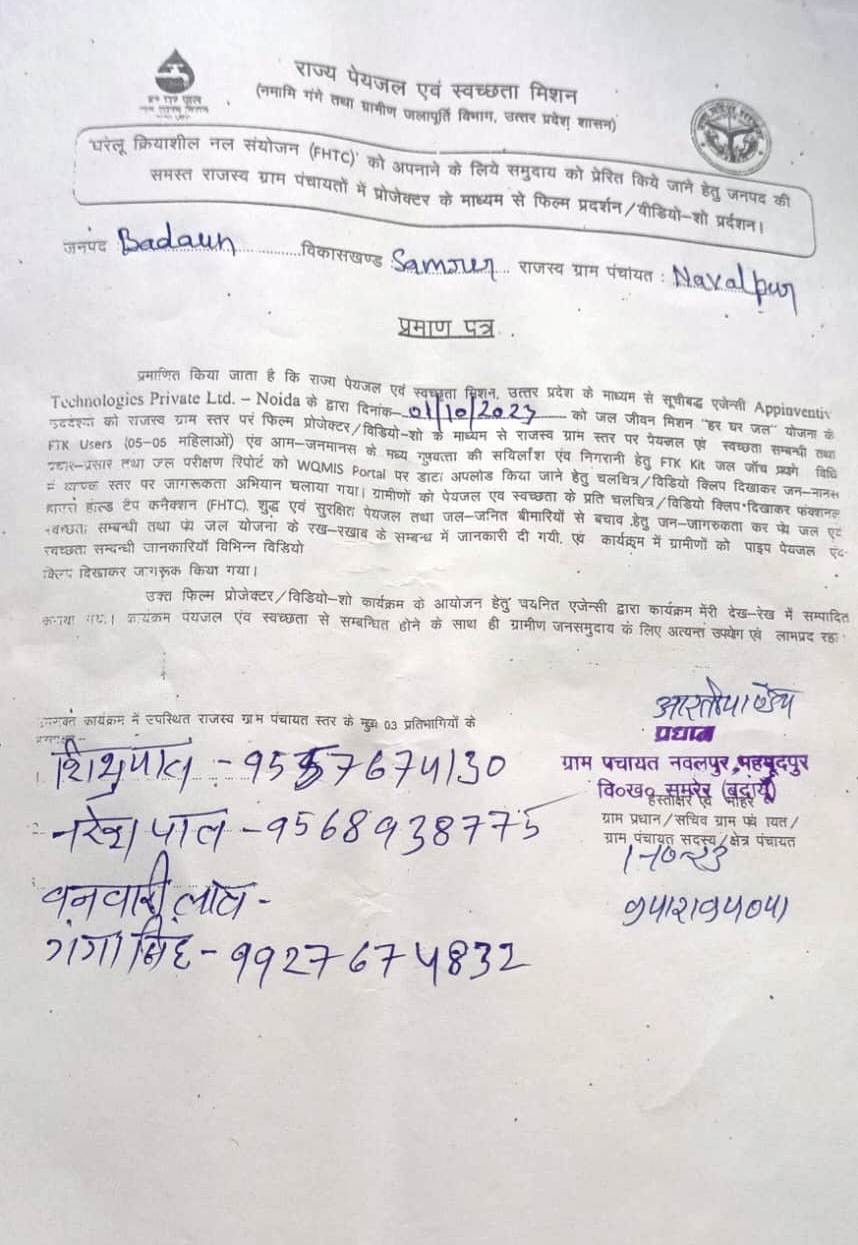 राज्य पेयजल एवं स्वच्छता मिशन
(नमामि गंगे तथा ग्रामीण जलापूर्ति विभाग, उत्तर प्रदेश शासन)
'घरेलू क्रियाशील नल संयोजन (FHTC)' को अपनाने के लिये समुदाय को प्रेरित किये जाने हेतु जनपद की
समस्त राजस्व ग्राम पंचायतों में प्रोजेक्टर के माध्यम से फिल्म प्रदर्शन/वीडियो-शो प्रर्दशन।
जनपद Badaun विकासखण्ड राजस्व ग्राम पंचायत : Navalpur
प्रमाण पत्र
प्रमाणित किया जाता है कि राज्य पेयजल एवं स्वच्छता मिशन, उत्तर प्रदेश के माध्यम से सूचीबद्ध एजेन्सी Appinventiv
Technologies Private Ltd. – Noida के द्वारा दिनांक 01/10/2023 को जल जीवन मिशन "हर घर जल" योजना के
को राजस्व ग्राम स्तर पर फिल्म प्रोजेक्टर/विडियो-शो के माध्यम से राजस्व ग्राम स्तर पर पेयजल एवं स्वच्छता सम्बन्धी तथा
FTK Users (05-05 महिलाओं) एंव आम-जनमानस के मध्य गुणवत्ता की सर्विलॉंश एंव निगरानी हेतु FTK Kit जल जॉंच विधि
प्रचार-प्रसार तथा जल परीक्षण रिपोर्ट को WQMIS Portal पर डाटा अपलोड किया जाने हेतु चलचित्र/विडियो क्लिप दिखाकर जन-मानस
में व्यापक स्तर पर जागरूकता अभियान चलाया गया। ग्रामीणों को पेयजल एव स्वच्छता के प्रति चलचित्र/विडियो क्लिप दिखाकर फंक्शनल
हाउस होल्ड टेप कनैक्शन (FHTC), शुद्ध एवं सुरक्षित पेयजल तथा जल-जनित बीमारियों से बचाव हेतु जन-जागरुकता कर पेय जल एंव
स्वच्छता सम्बन्धी तथा पेय जल योजना के रख-रखाव के सम्बन्ध में जानकारी दी गयी, एंव कार्यक्रम में ग्रामीणों को पाइप पेयजल एंव
स्वच्छता सम्बन्धी जानकारियॉ विभिन्न विडियो
क्लिप दिखाकर जागरूक किया गया।
उक्त फिल्म प्रोजेक्टर/विडियो-शो कार्यक्रम के आयोजन हेतु चयनित एजेन्सी द्वारा कार्यक्रम मेरी देख-रेख में सम्पादित
कराया गया। कार्यक्रम पेयजल एंव स्वच्छता से सम्बन्धित होने के साथ ही ग्रामीण जनसमुदाय के लिए अत्यन्त उपयेग एवं लाभप्रद रहा
कार्यक्रम में उपस्थित राजस्व ग्राम पंचायत स्तर के मुख्य 03 प्रतिभागियों के
शिशुपाल - 9557674130
नरेश पाल - 9568938775
वनवारी लाल -
गंगा सिंह - 9927674832
आरती पाण्डेय
प्रधान
ग्राम पंचायत नवलपुर
वि०ख० समरेर (बदायूँ)
हस्ताक्षर एवं मोहर
ग्राम प्रधान/सचिव ग्राम पंचायत/
ग्राम पंचायत सदस्य/क्षेत्र पंचायत